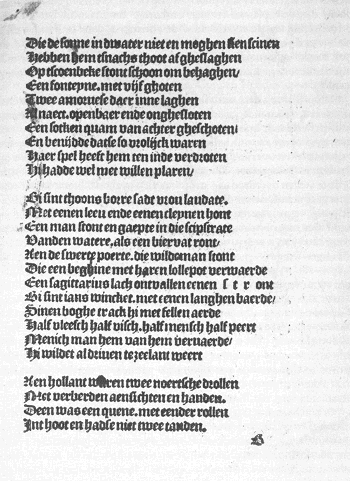 Die de sonne in dwater niet en moghen sien scinen
Hebben hem tsnachs thoot af gheslaghen
Op tscoenbeke stont schoon om behaghen/
Een fonteyne. met vijf ghoten
Twee amoruese daer inne laghen
Naect. openbaer ende onghesloten
Een sotken quam van achter gheschoten/
En benijdde datse so vrolijck waren
Haer spel heeft hem ten inde verdroten
Hi hadde wel met willen plaren/
Bi sint thoons borre sadt vrou laudate.
Met eenen leeu ende eenen cleynen hont
Een man stont en gaepte in die scipstrate
Vanden watere, als een biervat ront/
Aen de swerte poerte. die wildeman stont
Die een beghine met haren lollepot verwaerde
Een sagittarius lach ontvallen eenen s t r ont
Bi sint ians wincket. met eenen langhen baerde/
Zinen boghe track hi met fellen aerde
Half vleesch half visch. half mensch half peert
Menich man hem van hem vernaerde/
Hi wildet al driuen te zeelant weert
Aen hollant waren twee noertsche drollen
Met verberden aensichten en handen.
Deen was een quene. met eender rollen
Int hoot en hadse niet twee tanden.
B